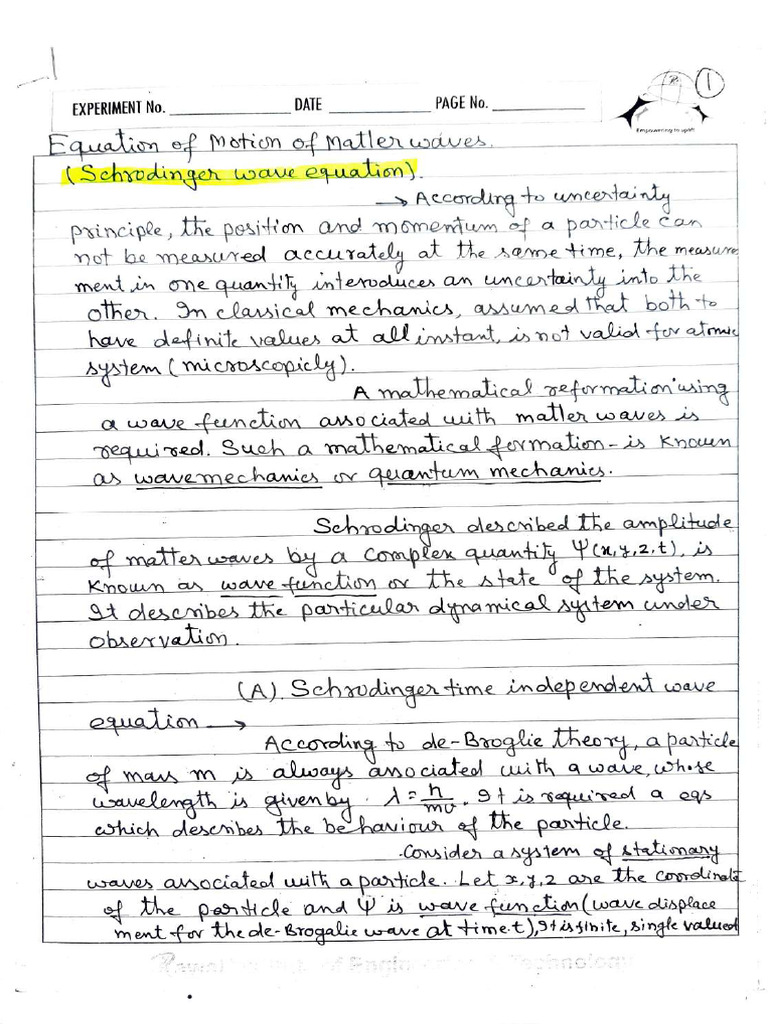 1
EXPERIMENT No. ____________ DATE ____________ PAGE No. ____________
Empowering to uplift
Equation of Motion of Matter waves.
(Schrodinger wave equation).
→ According to uncertainty
principle, the position and momentum of a particle can
not be measured accurately at the same time, the measure
ment in one quantity interoduces an uncertainty into the
other. In classical mechanics, assumed that both to
have definite values at all instant, is not valid for atomic
system (microscopicly).
A mathematical reformation using
a wave function associated with matter waves is
required. Such a mathematical formation is known
as wavemechanics or quantum mechanics.
Schrodinger described the amplitude
of matter waves by a complex quantity Ψ(x,y,z,t), is
known as wave function or the state of the system.
It describes the particular dynamical system under
observation.
(A). Schrodinger time independent wave
equation →
According to de-Broglie theory, a particle
of mass m is always associated with a wave, whose
wavelength is given by λ = h/mv. It is required a eqs
which describes the behaviour of the particle.
Consider a system of stationary
waves associated with a particle. Let x,y,z are the coordinate
of the particle and Ψ is wave function (wave displace
ment for the de-Brogalie wave at time t), It is finite, single valued